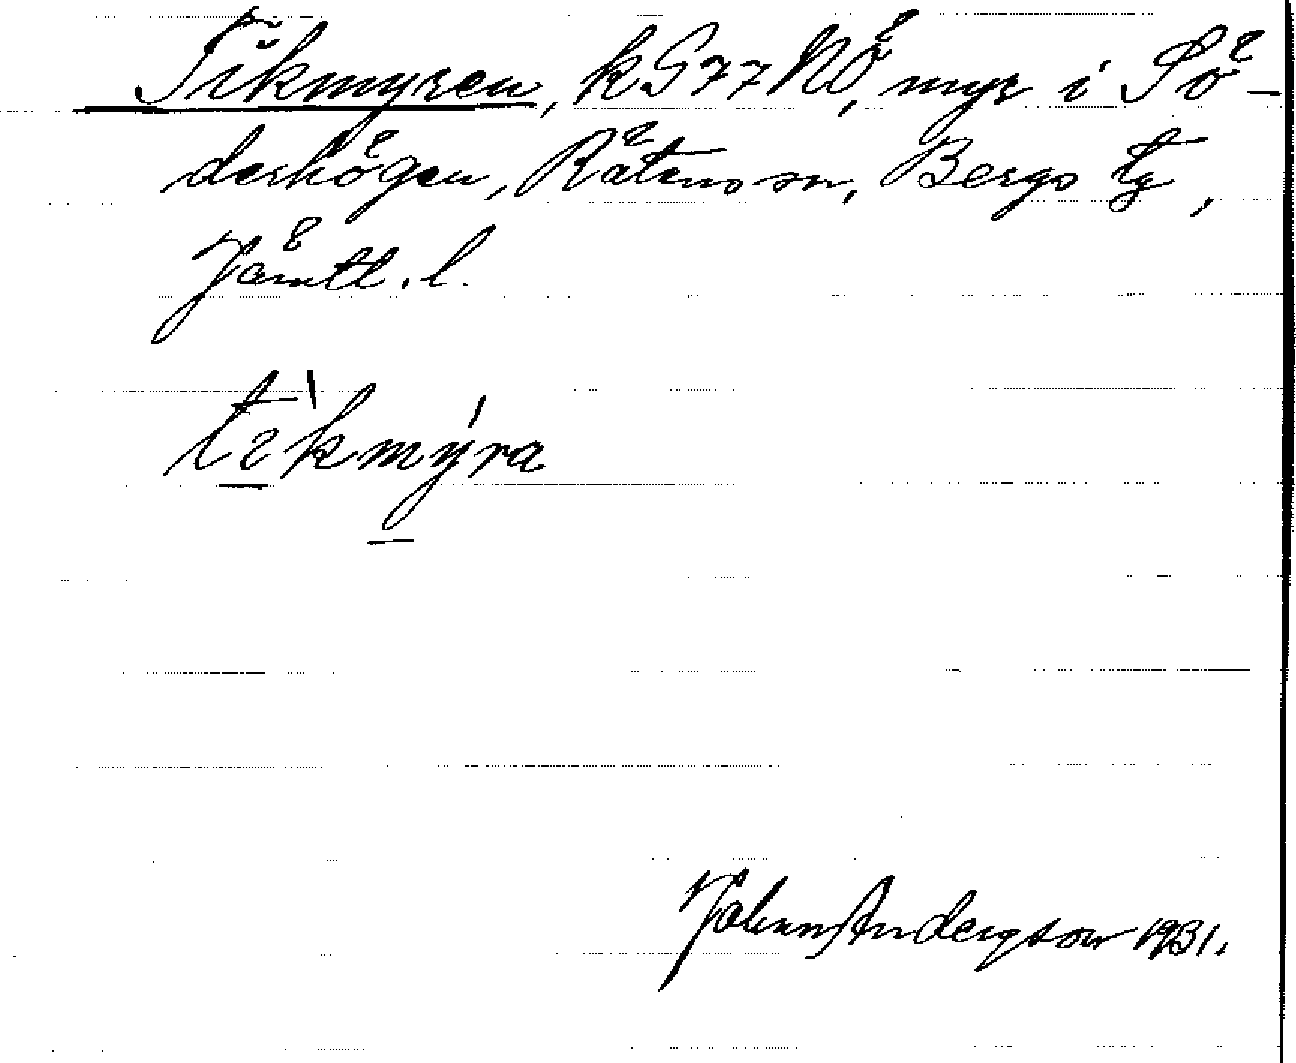 Tikmyren, k G77 NÖ, myr i Sö-
derhögen, Rätans sn, Bergs tg,
Jämtl. l.
Johan Andersson 1931.